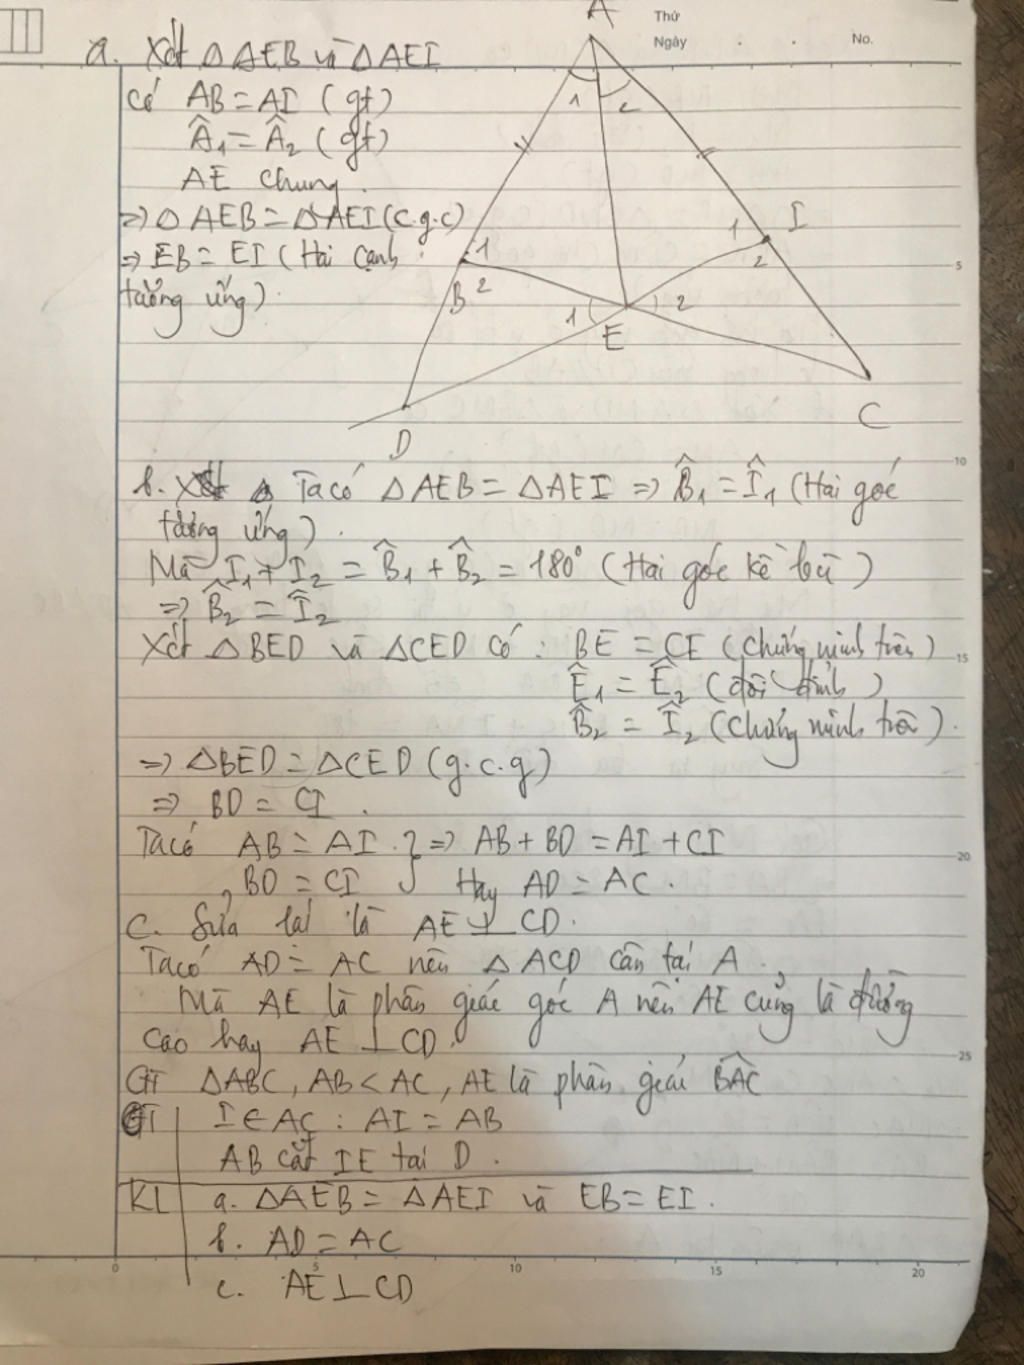 Thứ
Ngày . . No.
a. Xét △AEB và △AEI
có AB = AI (gt)
Â₁ = Â₂ (gt)
AE chung.
=> △AEB = △AEI (c.g.c)
=> EB = EI (Hai cạnh
tương ứng).
A
1 2
1 I
2
1
B 2
1 E 2
D
C
5
10
b. Ta có △AEB = △AEI => B̂₁ = Î₁ (Hai góc
tương ứng).
Mà Î₁ + Î₂ = B̂₁ + B̂₂ = 180° (Hai góc kề bù)
=> B̂₂ = Î₂
Xét △BED và △CED có : BE = CE (chứng minh trên)
15
Ê₁ = Ê₂ (đối đỉnh)
B̂₂ = Î₂ (chứng minh trên).
=> △BED = △CED (g.c.g)
=> BD = CI.
Ta có AB = AI } => AB + BD = AI + CI
20
BD = CI Hay AD = AC.
C. Sửa lại là AE ⊥ CD.
Ta có AD = AC nên △ACD cân tại A.
Mà AE là phân giác góc A nên AE cũng là đường
cao hay AE ⊥ CD.
25
GT △ABC, AB < AC, AE là phân giác BAC
GT I ∈ AC : AI = AB
AB cắt IE tại D.
KL a. △AEB = △AEI và EB = EI.
b. AD = AC
0 5 10 15 20
c. AE ⊥ CD